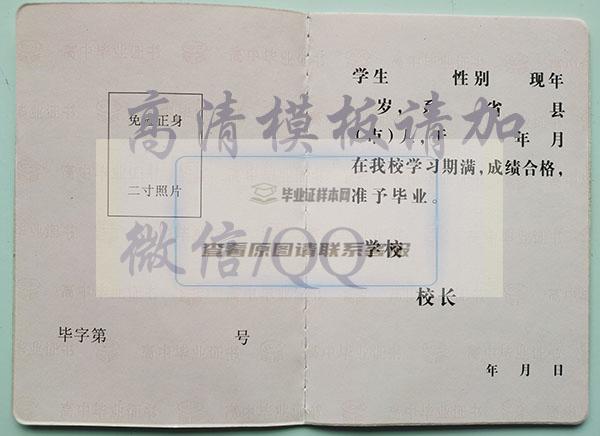 免冠正身
二寸照片
毕字第 号
学生 性别 现年
岁，系 省 县
(市)人，于 年 月
在我校学习期满，成绩合格，
准予毕业。
学校
校长
年 月 日
高清模板请加
微信/QQ
毕业证样本网
查看原图请联系客服